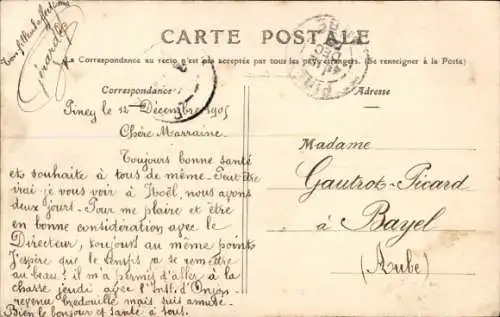 Ton filleul affectionné
Gérard
CARTE POSTALE
La Correspondance au recto n'est pas acceptée par tous les pays étrangers. (Se renseigner à la Poste)
Correspondance
Adresse
Piney le 12 Décembre 1905
Chère Marraine
Toujours bonne santé
et souhaite à tous de même. Peut être
vrai je vous voir à Noël, nous avons
deux jours. Pour me plaire et être
en bonne considération avec le
Directeur, toujours au même point
J'espère que le temps va se remettre
au beau! il m'a permis d'aller à la
chasse jeudi avec l'Inst. d'Onjon
revenu bredouille mais suis amusé.
Bien le bonjour et santé à tous.
Madame
Gautrot-Picard
à Bayel
(Aube)